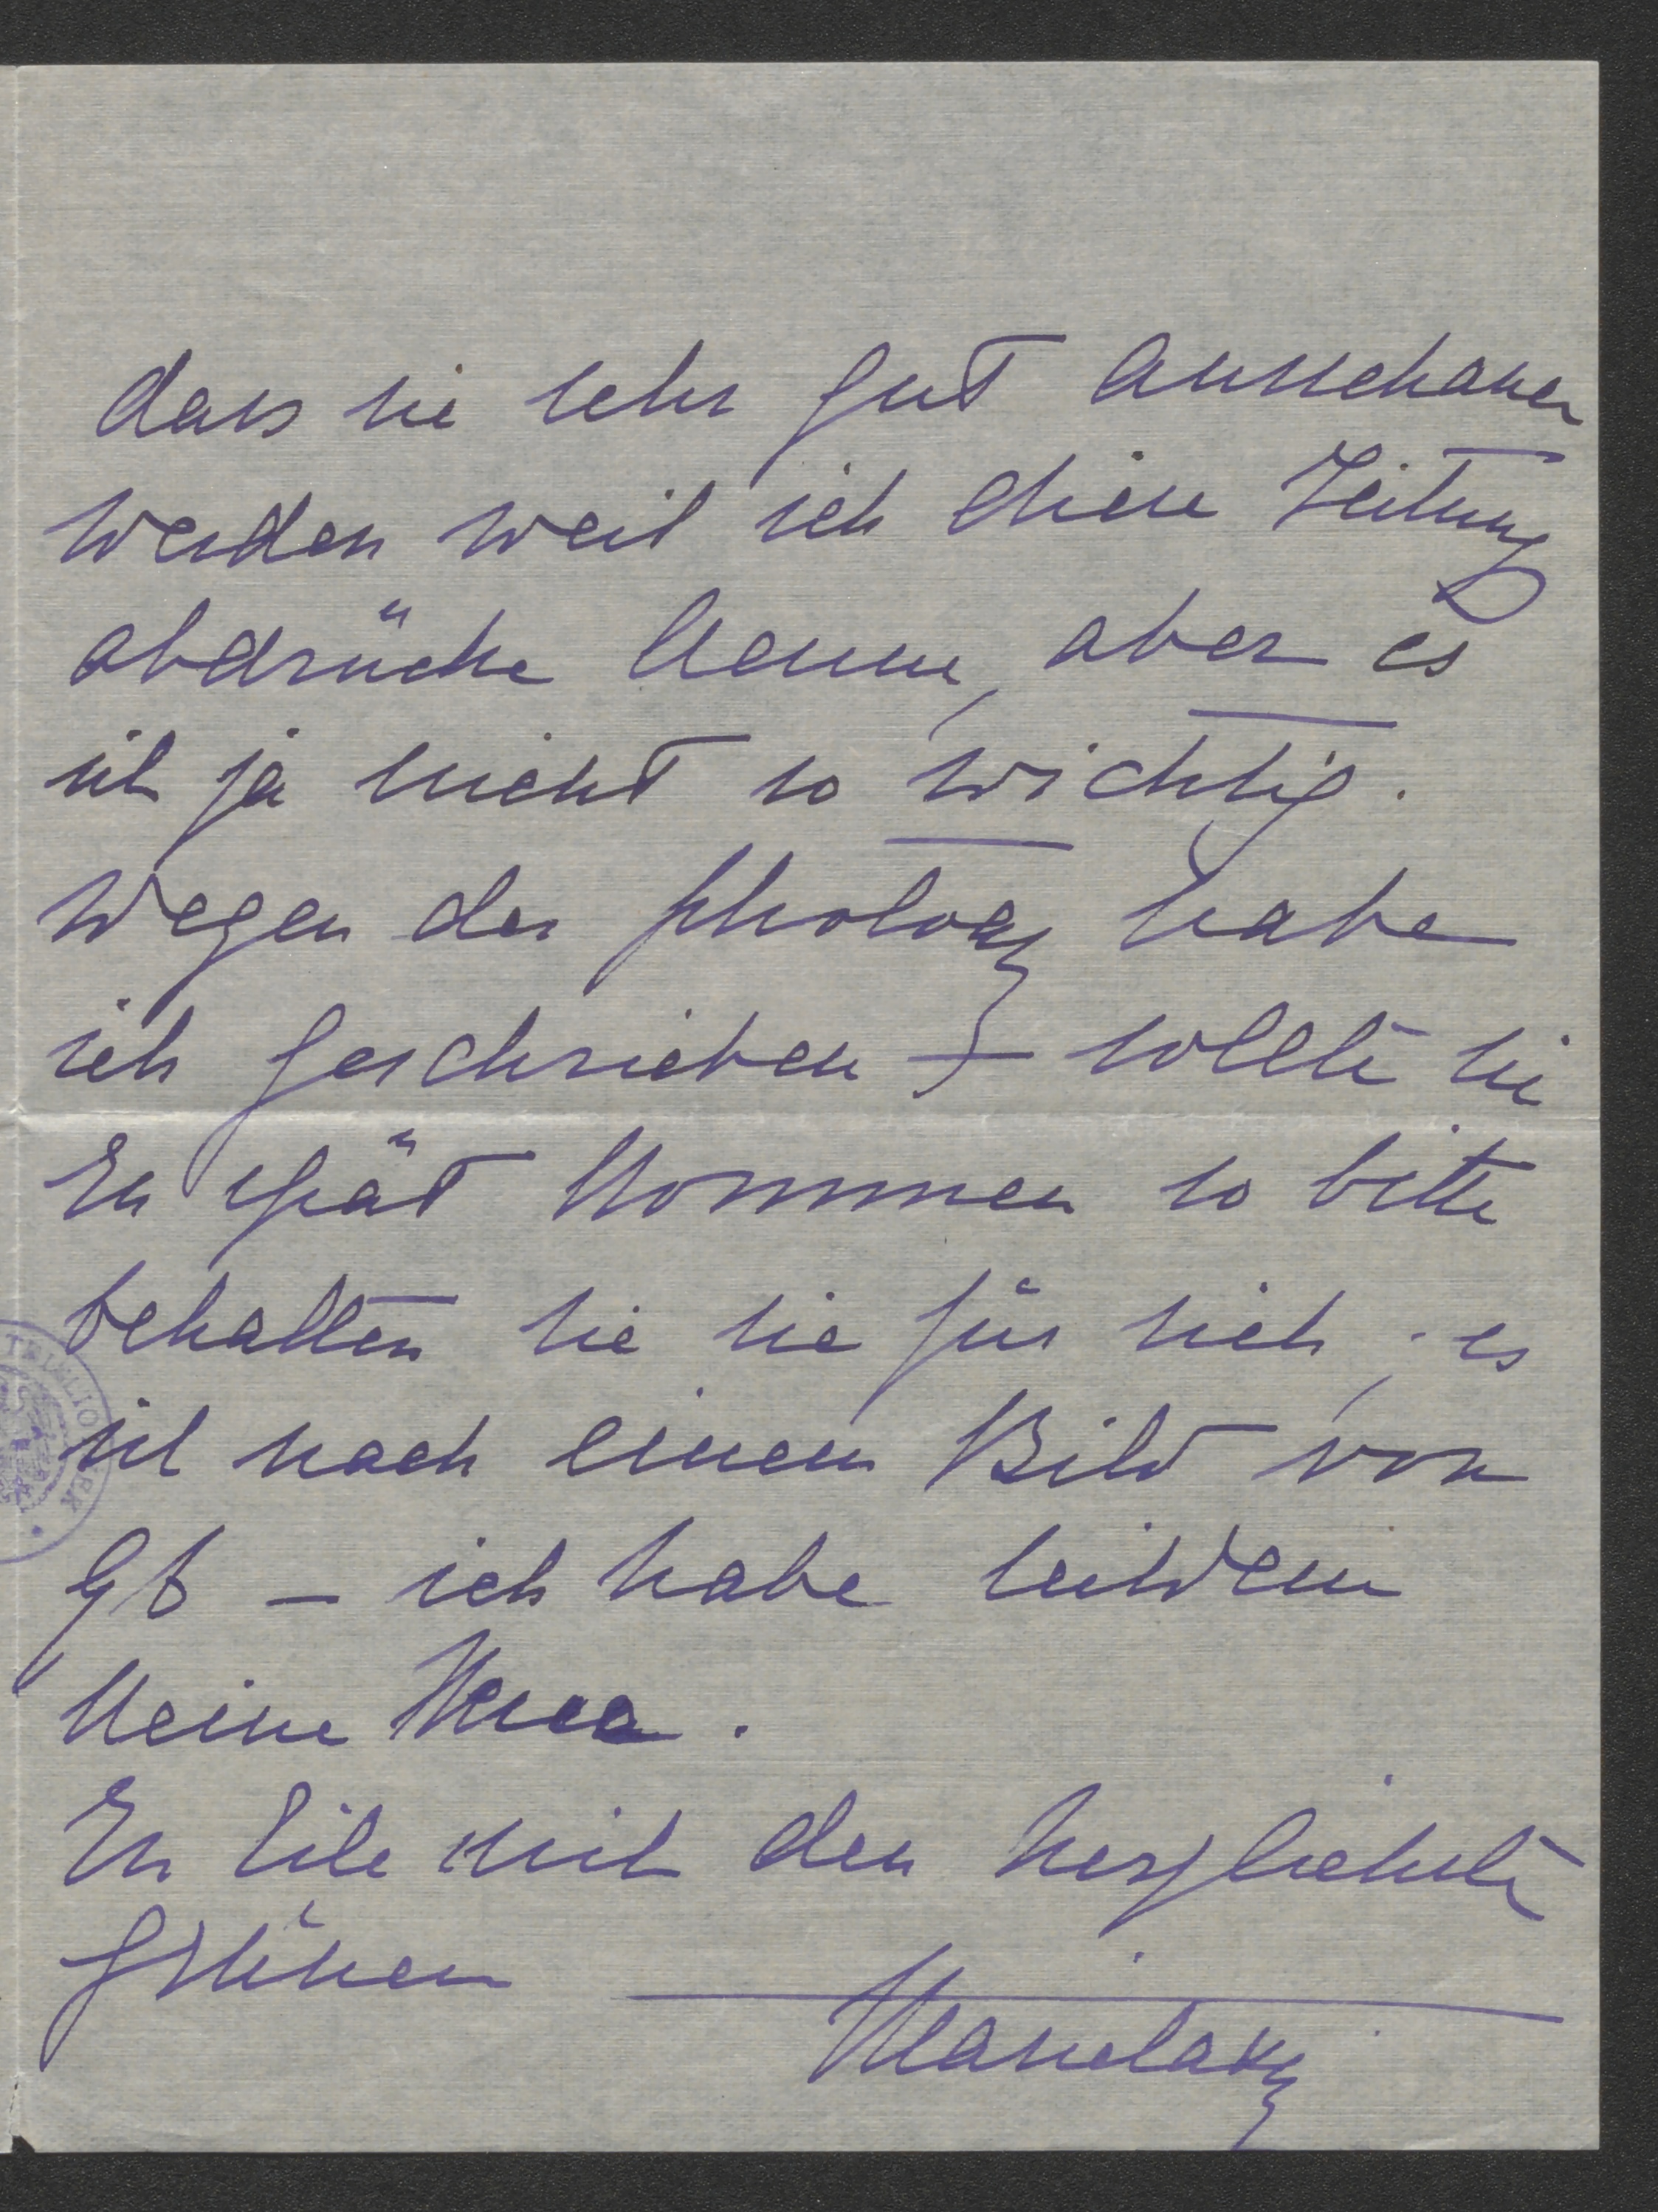 dass sie sehr gut ausschauen
werden weil ich diese Zeitung
abdrücke kenne, aber es
ist ja nicht so wichtig.
Wegen der photogr habe
ich geschrieben – sollte sie
zu spät kommen so bitte
behalten sie sie für sich, es
ist nach einem Bild von
– ich habe seitdem
keine
In Eile mit den herzlichsten
Grüssen